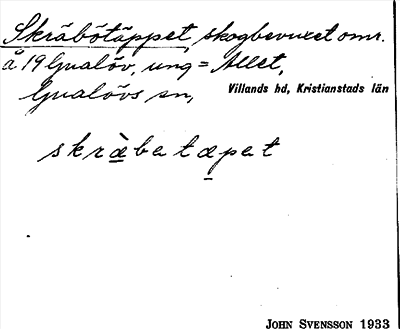 Skräbötäppet, skogbevuxet omr.
å 19 Gualöv, ung = Allet,
Gualövs sn, Villands hd, Kristianstads län
skræ̀betæpet
JOHN SVENSSON 1933